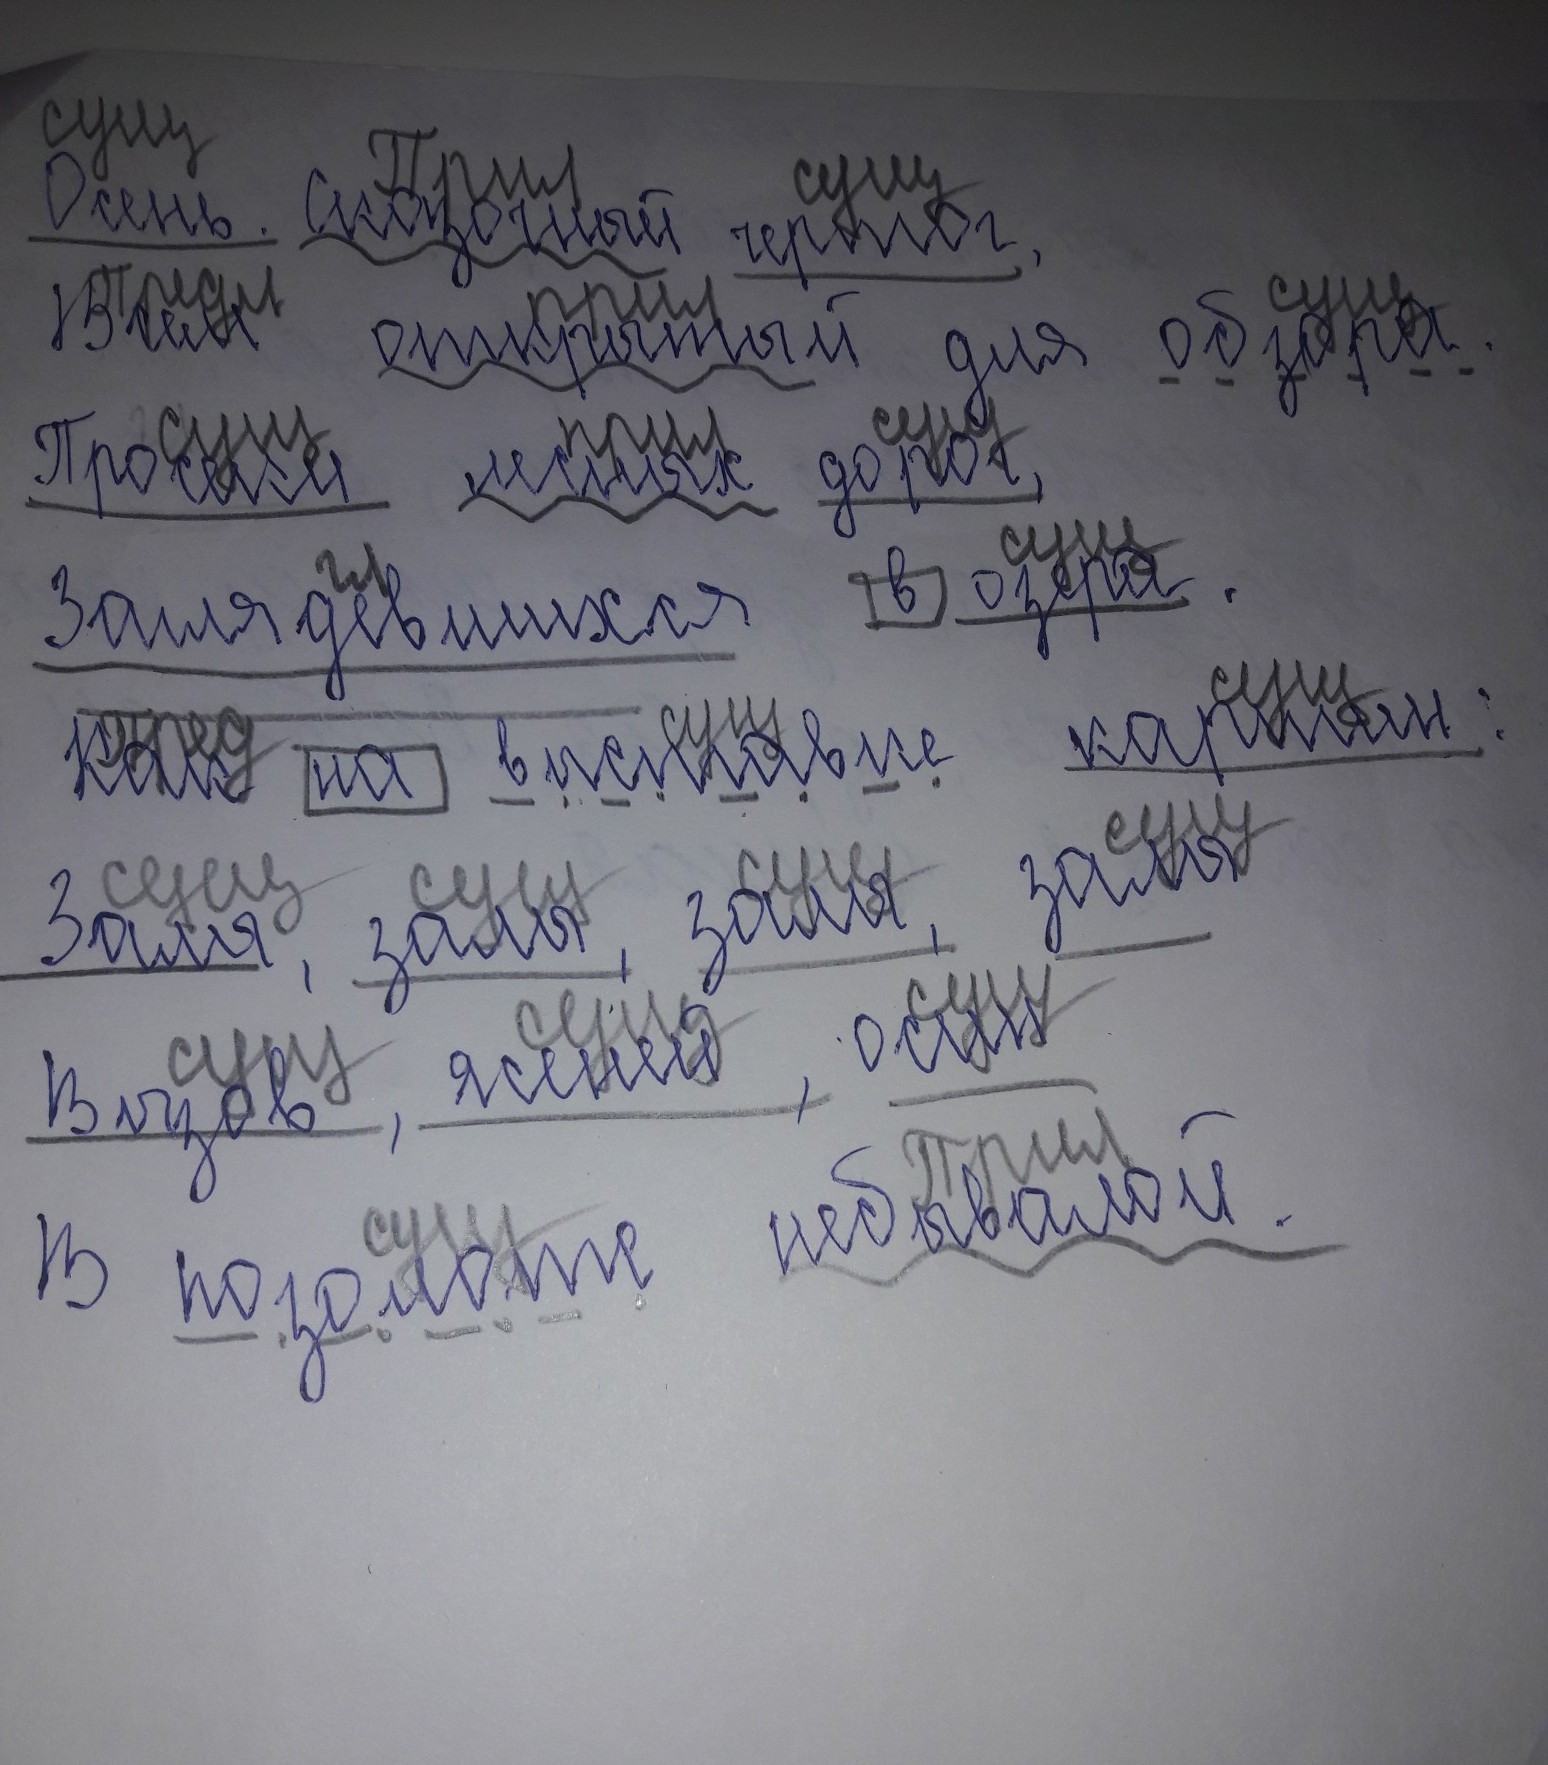 сущ Прил сущ
Осень. Сказочный чертог,
предл прил сущ
Всем открытый для обзора.
сущ прил сущ
Просеки лесных дорог,
гл сущ
Заглядевшихся в озера.
пред сущ сущ
Как на выставке картин:
сущ сущ сущ сущ
Залы, залы, залы, залы
сущ сущ сущ
Вязов, ясеней, осин
сущ Прил
В позолоте небывалой.